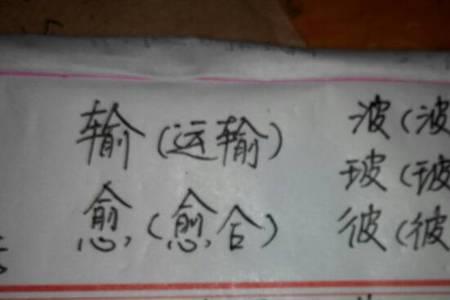 输(运输) 波(波
愈(愈合) 玻(玻
彼(彼